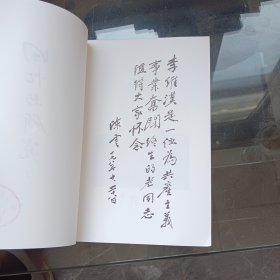 李维汉是一位为共产主义
事业奋闘终生的老同志
值得大家怀念
陈云
回忆与研究